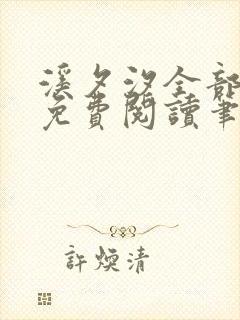 溪夕汐全部
免費閱讀筆
許煥清